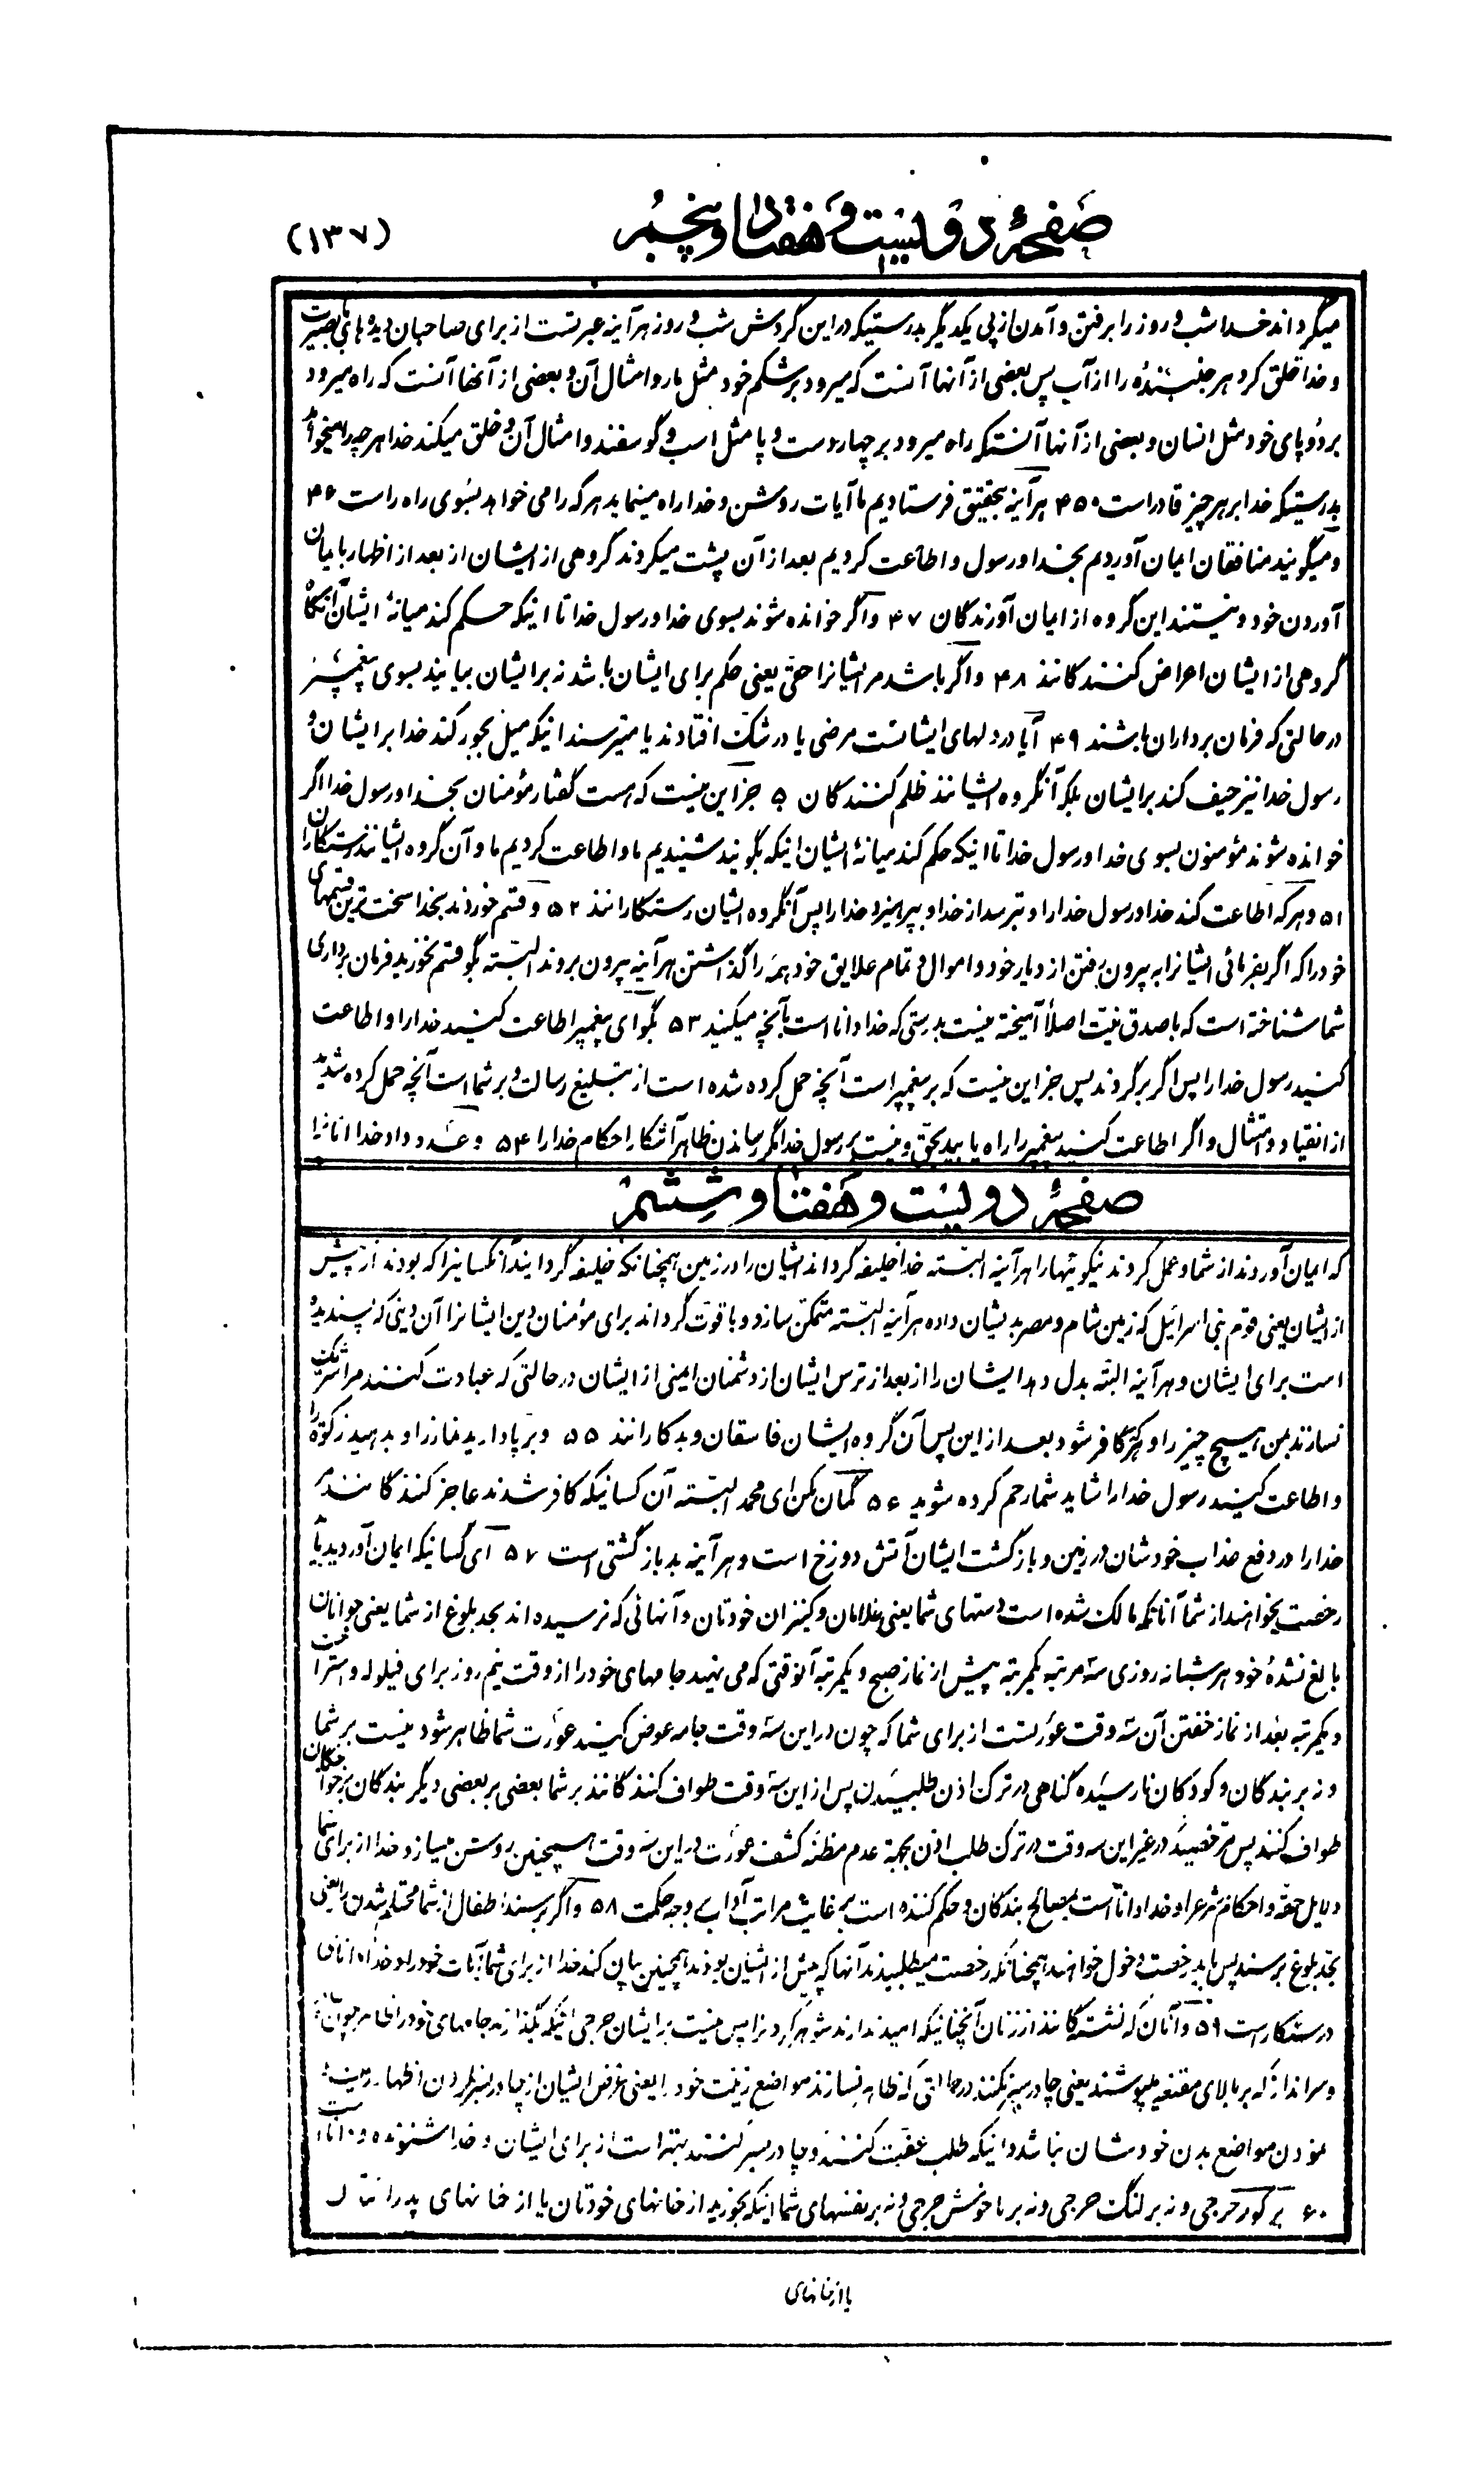 صفحهٔ دویست و هفتاد و پنجم
(۱۳۷)
میگرداند خدا شب و روز را برفتن و آمدن از پی یکدیگر بدرستیکه در این گردش شب و روز هرآینه عبرتست از برای صاحبان دیده‌های بصیرت
و خدا خلق کرد هر جنبندهٔ را از آب پس بعضی از آنها آنست که میرود بر شکم خود مثل مار و امثال آن و بعضی از آنها آنست که راه میرود
بر دو پای خود مثل انسان و بعضی از آنها آنستکه راه میرود بر چهار دست و پا مثل اسب و گوسفند و امثال آن و خلق میکند خدا هرچه را میخواهد
بدرستیکه خدا بر هر چیز قادر است ۴۵ هرآینه بتحقیق فرستادیم ما آیات روشن و خدا راه مینماید هر که را می خواهد بسوی راه راست ۴۶
و میگویند منافقان ایمان آوردیم بخدا و رسول و اطاعت کردیم بعد از آن پشت میکردند گروهی از ایشان از بعد از اظهار بایمان
آوردن خود و نیستند این گروه از ایمان آورندگان ۴۷ و اگر خوانده شوند بسوی خدا و رسول خدا تا اینکه حکم کند میانهٔ ایشان آنگاه
گروهی از ایشان اعراض کنندگانند ۴۸ و اگر باشد مر ایشانرا حق یعنی حکم برای ایشان باشد نه بر ایشان بیایند بسوی پیغمبر
در حالتی که فرمان برداران باشند ۴۹ آیا در دلهای ایشانست مرضی یا در شک افتادند یا میترسند اینکه میل بجور کند خدا بر ایشان و
رسول خدا نیز حیف کند بر ایشان بلکه آنگروه ایشانند ظلم کنندگان ۵۰ جز این نیست که هست گفتار مؤمنان بخدا و رسول خدا اگر
خوانده شوند مؤمنون بسوی خدا و رسول خدا تا اینکه حکم کند میانهٔ ایشان اینکه بگویند شنیدیم ما و اطاعت کردیم ما و آن گروه ایشانند رستگاران
۵۱ و هر که اطاعت کند خدا و رسول خدا را و بترسد از خدا و بپرهیزد خدا را پس آنگروه ایشان رستگارانند ۵۲ و قسم خوردند بخدا سخت ترین قسمهای
خود را که اگر بفرمائی ایشانرا به بیرون رفتن از دیار خود و اموال و تمام علایق خود همه را گذاشتن هرآینه بیرون بروند البته بگو قسم نخورید فرمان برداری
شما شناخته است که با صدق نیت اصلاً آمیخته نیست بدرستی که خدا دانا است بآنچه میکنید ۵۳ بگو ای پیغمبر اطاعت کنید خدا را و اطاعت
کنید رسول خدا را پس اگر برگردند پس جز این نیست که بر پیغمبر است آنچه حمل کرده شده است از تبلیغ رسالت و بر شما است آنچه حمل کرده شدید
از انقیاد و امتثال و اگر اطاعت کنید پیغمبر را راه یابید بحق و نیست بر رسول خدا مگر رساندن ظاهر آشکارا احکام خدا را ۵۴ وعده داد خدا آنانرا
صفحهٔ دویست و هفتاد و ششم
که ایمان آوردند از شما و عمل کردند نیکوئیها را هرآینه البته خدا خلیفه گرداند ایشان را در زمین همچنانکه خلیفه گردانید آنکسانیرا که بودند از پیش
از ایشان یعنی قوم بنی اسرائیل که زمین شام و مصر بدیشان داده هرآینه البته متمکن سازد و با قوت گرداند برای مؤمنان دین ایشانرا آن دینی که پسندیده
است برای ایشان و هرآینه البته بدل دهد ایشان را از بعد از ترس ایشان از دشمنان ایمنی از ایشان در حالتی که عبادت کنند مرا شریک
نسازند بمن هیچ چیز را و هرکه کافر شود بعد از این پس آن گروه ایشان فاسقان و بدکارانند ۵۵ و بر پا دارید نماز را و بدهید زکوة را
و اطاعت کنید رسول خدا را شاید شما رحم کرده شوید ۵۶ گمان مکن ای محمد البته آن کسانیکه کافر شدند عاجز کنندگانند
خدا را در دفع عذاب خودشان در زمین و بازگشت ایشان آتش دوزخ است و هرآینه بد بازگشتی است ۵۷ ای کسانیکه ایمان آوردید باید
رخصت بخواهند از شما آنانکه مالک شده است دستهای شما یعنی غلامان و کنیزان خودتان و آنهائی که نرسیده اند بحد بلوغ از شما یعنی جوانان
بالغ نشدهٔ خود هر شبانه روزی سه مرتبه یکمرتبه پیش از نماز صبح و یکمرتبه آنوقتی که می نهید جامهای خود را از وقت نیم روز برای قیلوله و استراحت
و یکمرتبه بعد از نماز خفتن آن سه وقت عورتست از برای شما که چون در این سه وقت جامه عوض کنید عورت شما ظاهر شود نیست بر شما
و نه بر بندگان و کودکان نارسیده گناهی در ترک اذن طلبیدن پس از این سه وقت طواف کنندگانند بر شما بعضی بر بعضی دیگر بندگان بر خواجگان
طواف کنند پس مرخصند در غیر این سه وقت در ترک طلب اذن بجهة عدم مظنه کشف عورت در این سه وقت همچنین روشن میسازد خدا از برای شما
دلایل حقه و احکام شرع را و خدا دانا است بمصالح بندگان و حکم کننده است بر غایت مراتب آداب بر وجه حکمت ۵۸ و اگر برسند اطفال از شما محتلم شدن را یعنی
بحد بلوغ برسند پس باید رخصت دخول خواهند همچنانکه رخصت میطلبیدند آنها که پیش از ایشان بودند همچنین بیان کند خدا از برای شما آیات خود را و خدا دانای
درستکار است ۵۹ و آنان که نشستگانند از زنان آنچنانیکه امید ندارند شوهر کردنرا پس نیست بر ایشان حرجی اینکه بگذارند جامهای خود را ظاهر چون
و سرانداز که بر بالای مقنعه میپوشند یعنی چادر بسر نکنند در حالتی که ظاهر نسازند مواضع زینت خود را یعنی غرض ایشان از چادر بسر نکردن اظهار زینت
نمودن مواضع بدن خودشان نباشد و اینکه طلب عفت کنند و چادر بسر کنند بهتر است از برای ایشان و خدا شنونده و دانا است
۶۰ بر کور حرجی و نه بر لنگ حرجی و نه بر ناخوش حرجی و نه بر نفسهای شما اینکه بخورید از خانهای خودتان یا از خانهای پدرانتان
یا از خانهای